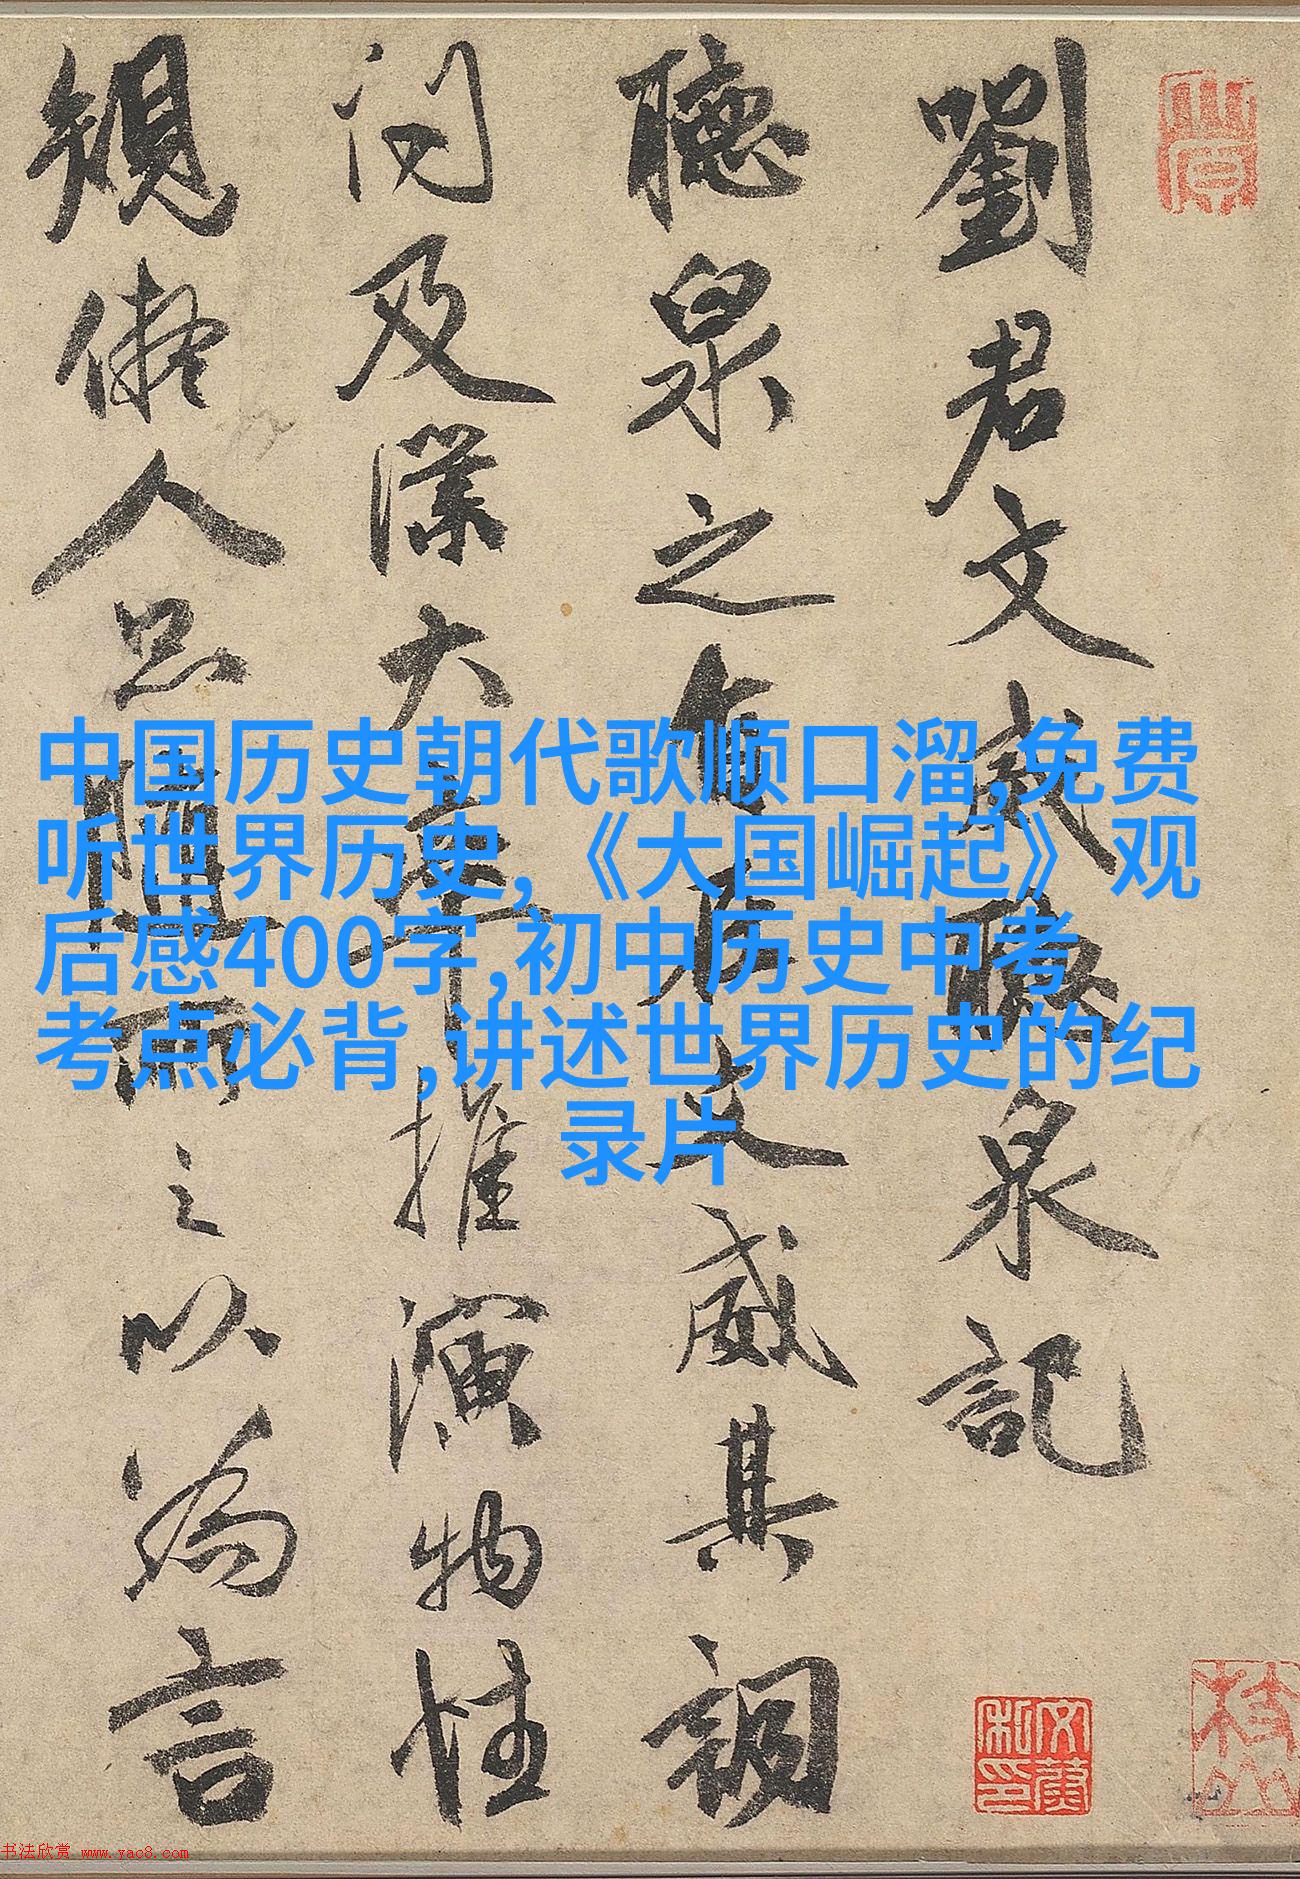 劉君文威聽泉記
聽泉之君文威其調
及大率推演物性
規儗人品體而之以為言
中国历史朝代歌顺口溜,免费
听世界历史,《大国崛起》观
后感400字,初中历史中考
考点必背,讲述世界历史的纪
录片
书法欣赏 www.yac8.com